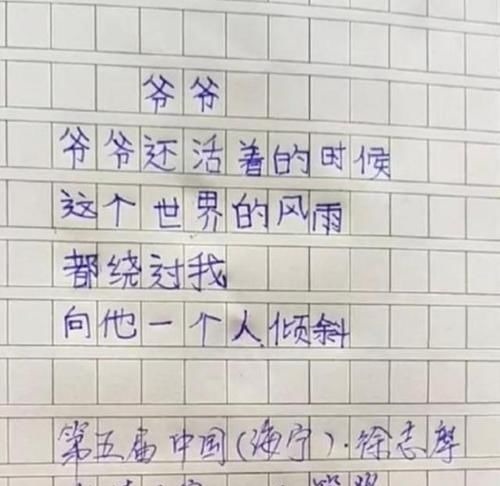 爷爷
爷爷还活着的时候
这个世界的风雨
都绕过我
向他一个人倾斜
第五届中国(海宁)·徐志摩